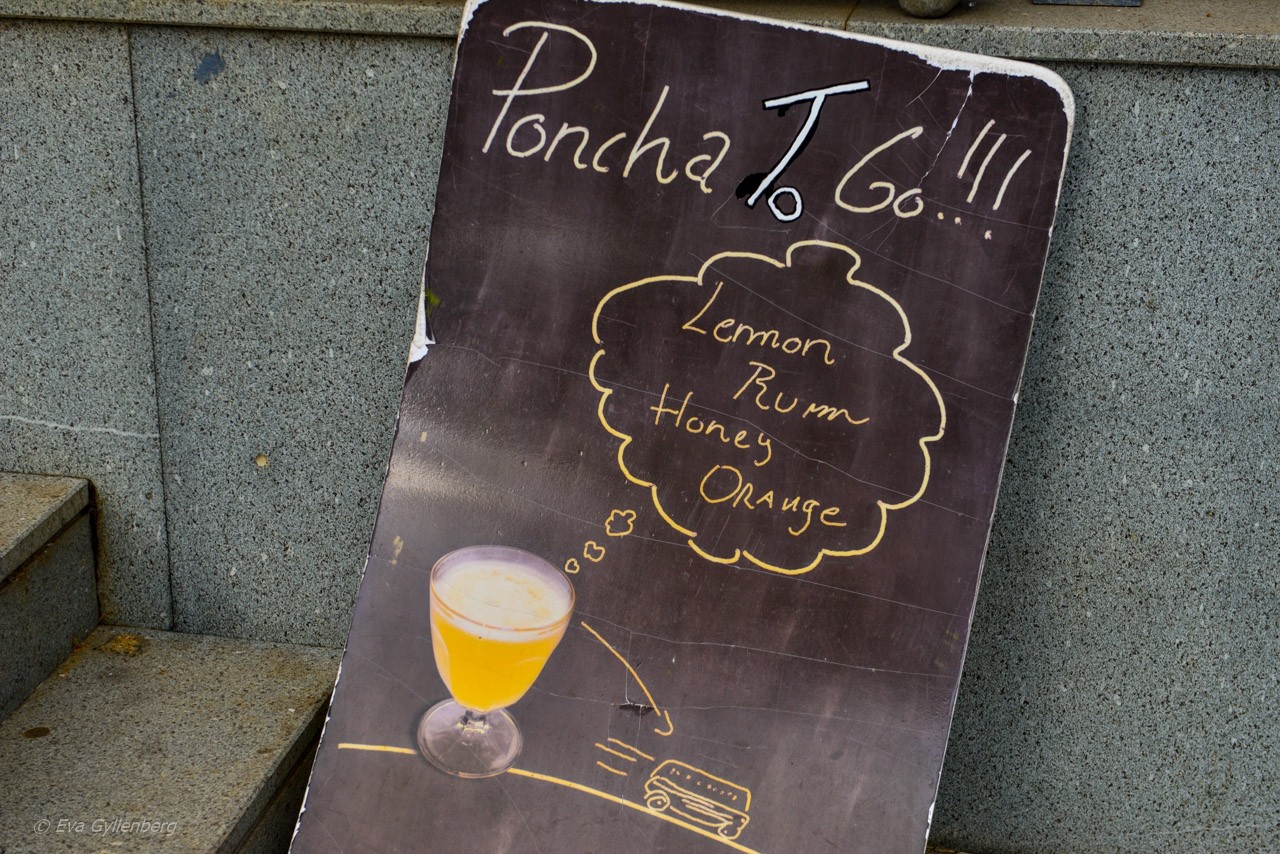 Poncha To Go..!!!
Lemon
Rum
Honey
Orange
© Eva Gyllenberg